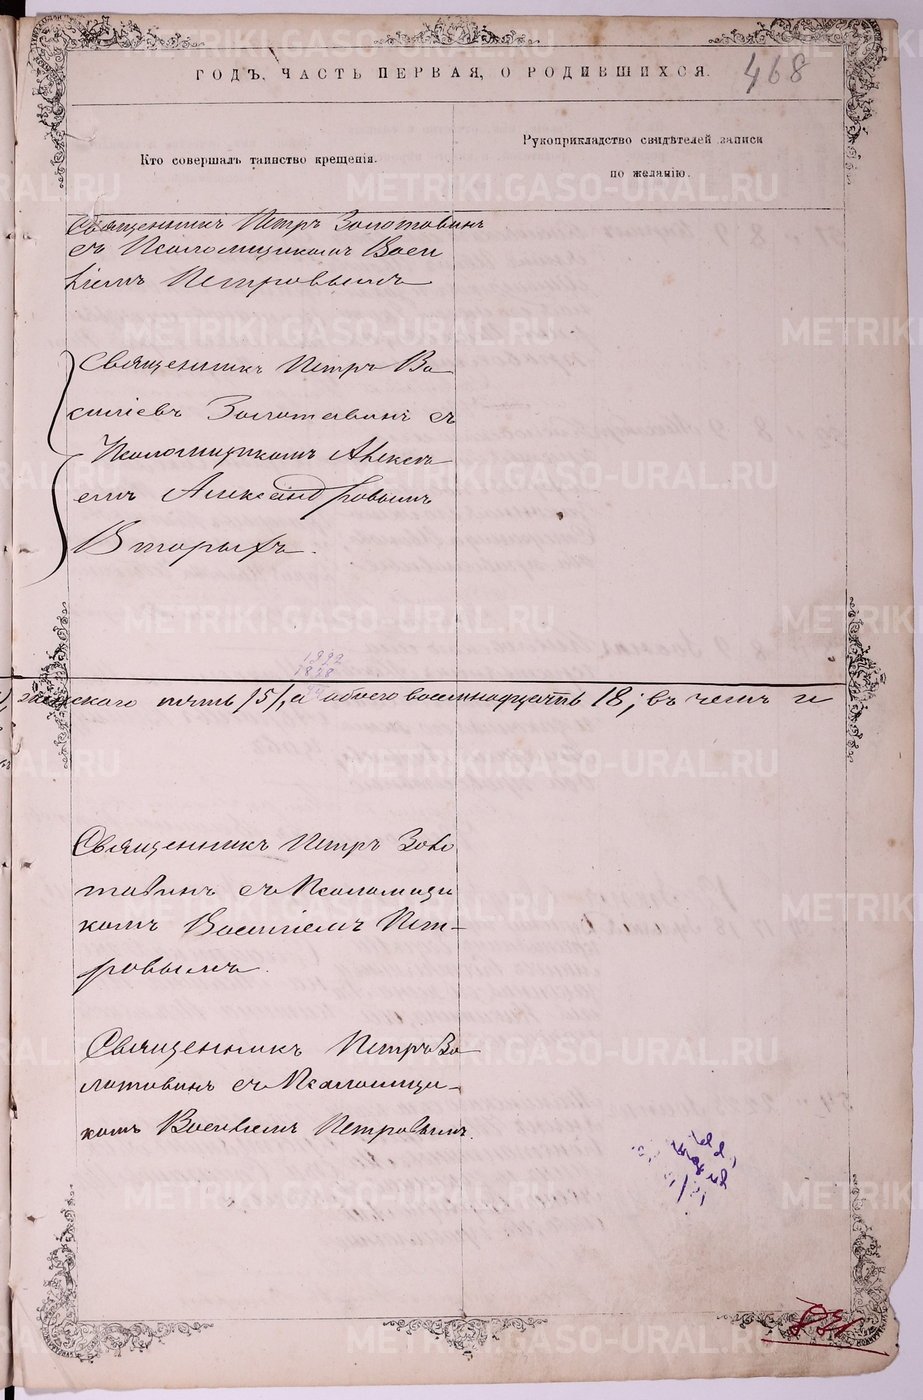 468
ГОДЪ, ЧАСТЬ ПЕРВАЯ, О РОДИВШИХСЯ.
Кто совершалъ таинство крещенія.
Рукоприкладство свидѣтелей записи
по желанію.
Священникъ Петръ Золотавинъ
съ Псаломщикомъ Васи
ліемъ Петровымъ
Священникъ Петръ Ва
силіевъ Золотавинъ съ
Псаломщикомъ Алексѣ
емъ Александровымъ
Вторыхъ.
1892
1898
женскаго пять /5/, а обоего восемнадцать 18; въ чемъ и
Священникъ Петръ Золо
тавинъ съ Псаломщи
комъ Василіемъ Пет-
ровымъ.
Священникъ Петръ Зо
лотавинъ съ Псаломщи-
комъ Василіемъ Петровымъ.
METRIKI.GASO-URAL.RU